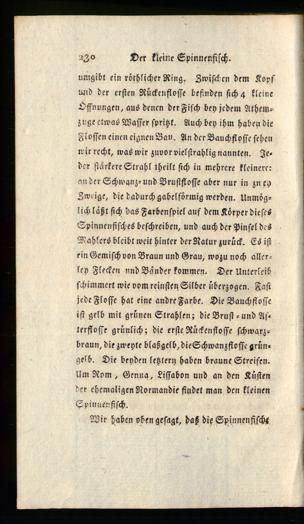 230 Der kleine Spinnenfisch.
umgibt ein röthlicher Ring. Zwischen dem Kopf
und der ersten Rückenflosse befinden sich 4 kleine
Öffnungen, aus denen der Fisch bey jedem Athem-
zuge etwas Wasser spritzt. Auch bey ihm haben die
Flossen einen eignen Bau. An der Bauchflosse sehen
wir recht, was wir zuvor vielstrahlig nannten. Je-
der stärkere Strahl theilt sich in mehrere kleinere:
an der Schwanz- und Brustflosse aber nur in zwey
Zweige, die dadurch gabelförmig werden. Unmög-
lich läßt sich das Farbenspiel auf dem Körper dieses
Spinnenfisches beschreiben, und auch der Pinsel des
Mahlers bleibt weit hinter der Natur zurück. Es ist
ein Gemisch von Braun und Grau, wozu noch aller-
ley Flecken und Bänder kommen. Der Unterleib
schimmert wie vom reinsten Silber überzogen. Fast
jede Flosse hat eine andre Farbe. Die Bauchflosse
ist gelb mit grünen Strahlen; die Brust- und Af-
terflosse grünlich; die erste Rückenflosse schwarz-
braun, die zweyte blaßgelb, die Schwanzflosse grün-
gelb. Die beyden letztern haben braune Streifen.
Um Rom, Genua, Lissabon und an den Küsten
der ehemaligen Normandie findet man den kleinen
Spinnenfisch.
Wir haben oben gesagt, daß die Spinnenfische